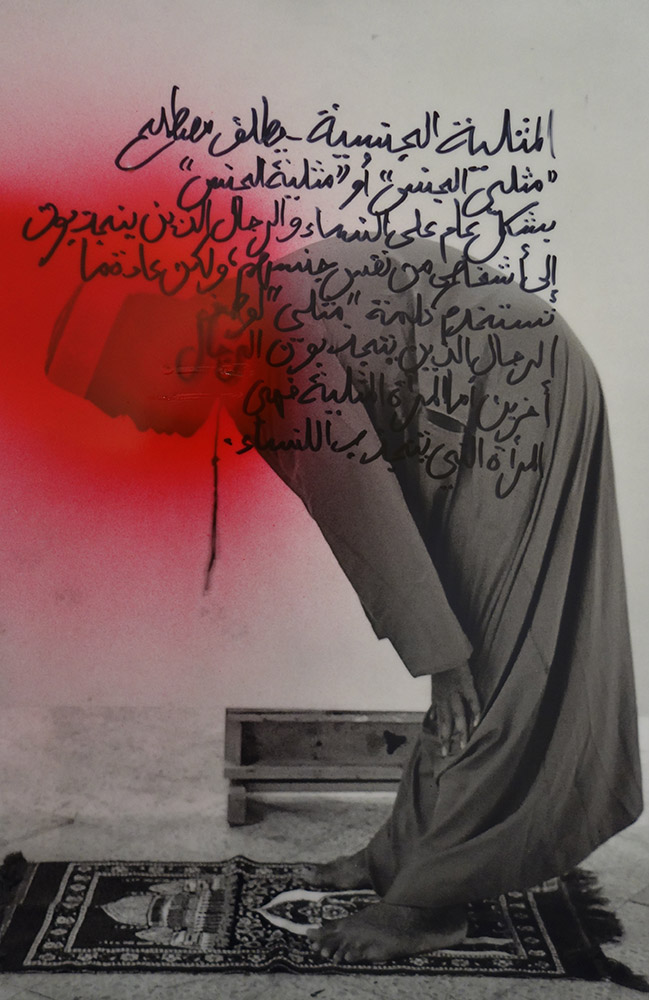 المثلية الجنسية - يطلق مصطلح
"مثلي الجنس" أو "مثلية الجنس"
بشكل عام على النساء والرجال الذين ينجذبون
إلى أشخاص من نفس جنسهم، ولكن عادة ما
تستخدم كلمة "مثلي" لوصف
الرجال الذين ينجذبون الرجال
آخرين أما المرأة المثلية فهي
المرأة التي تنجذب للنساء.